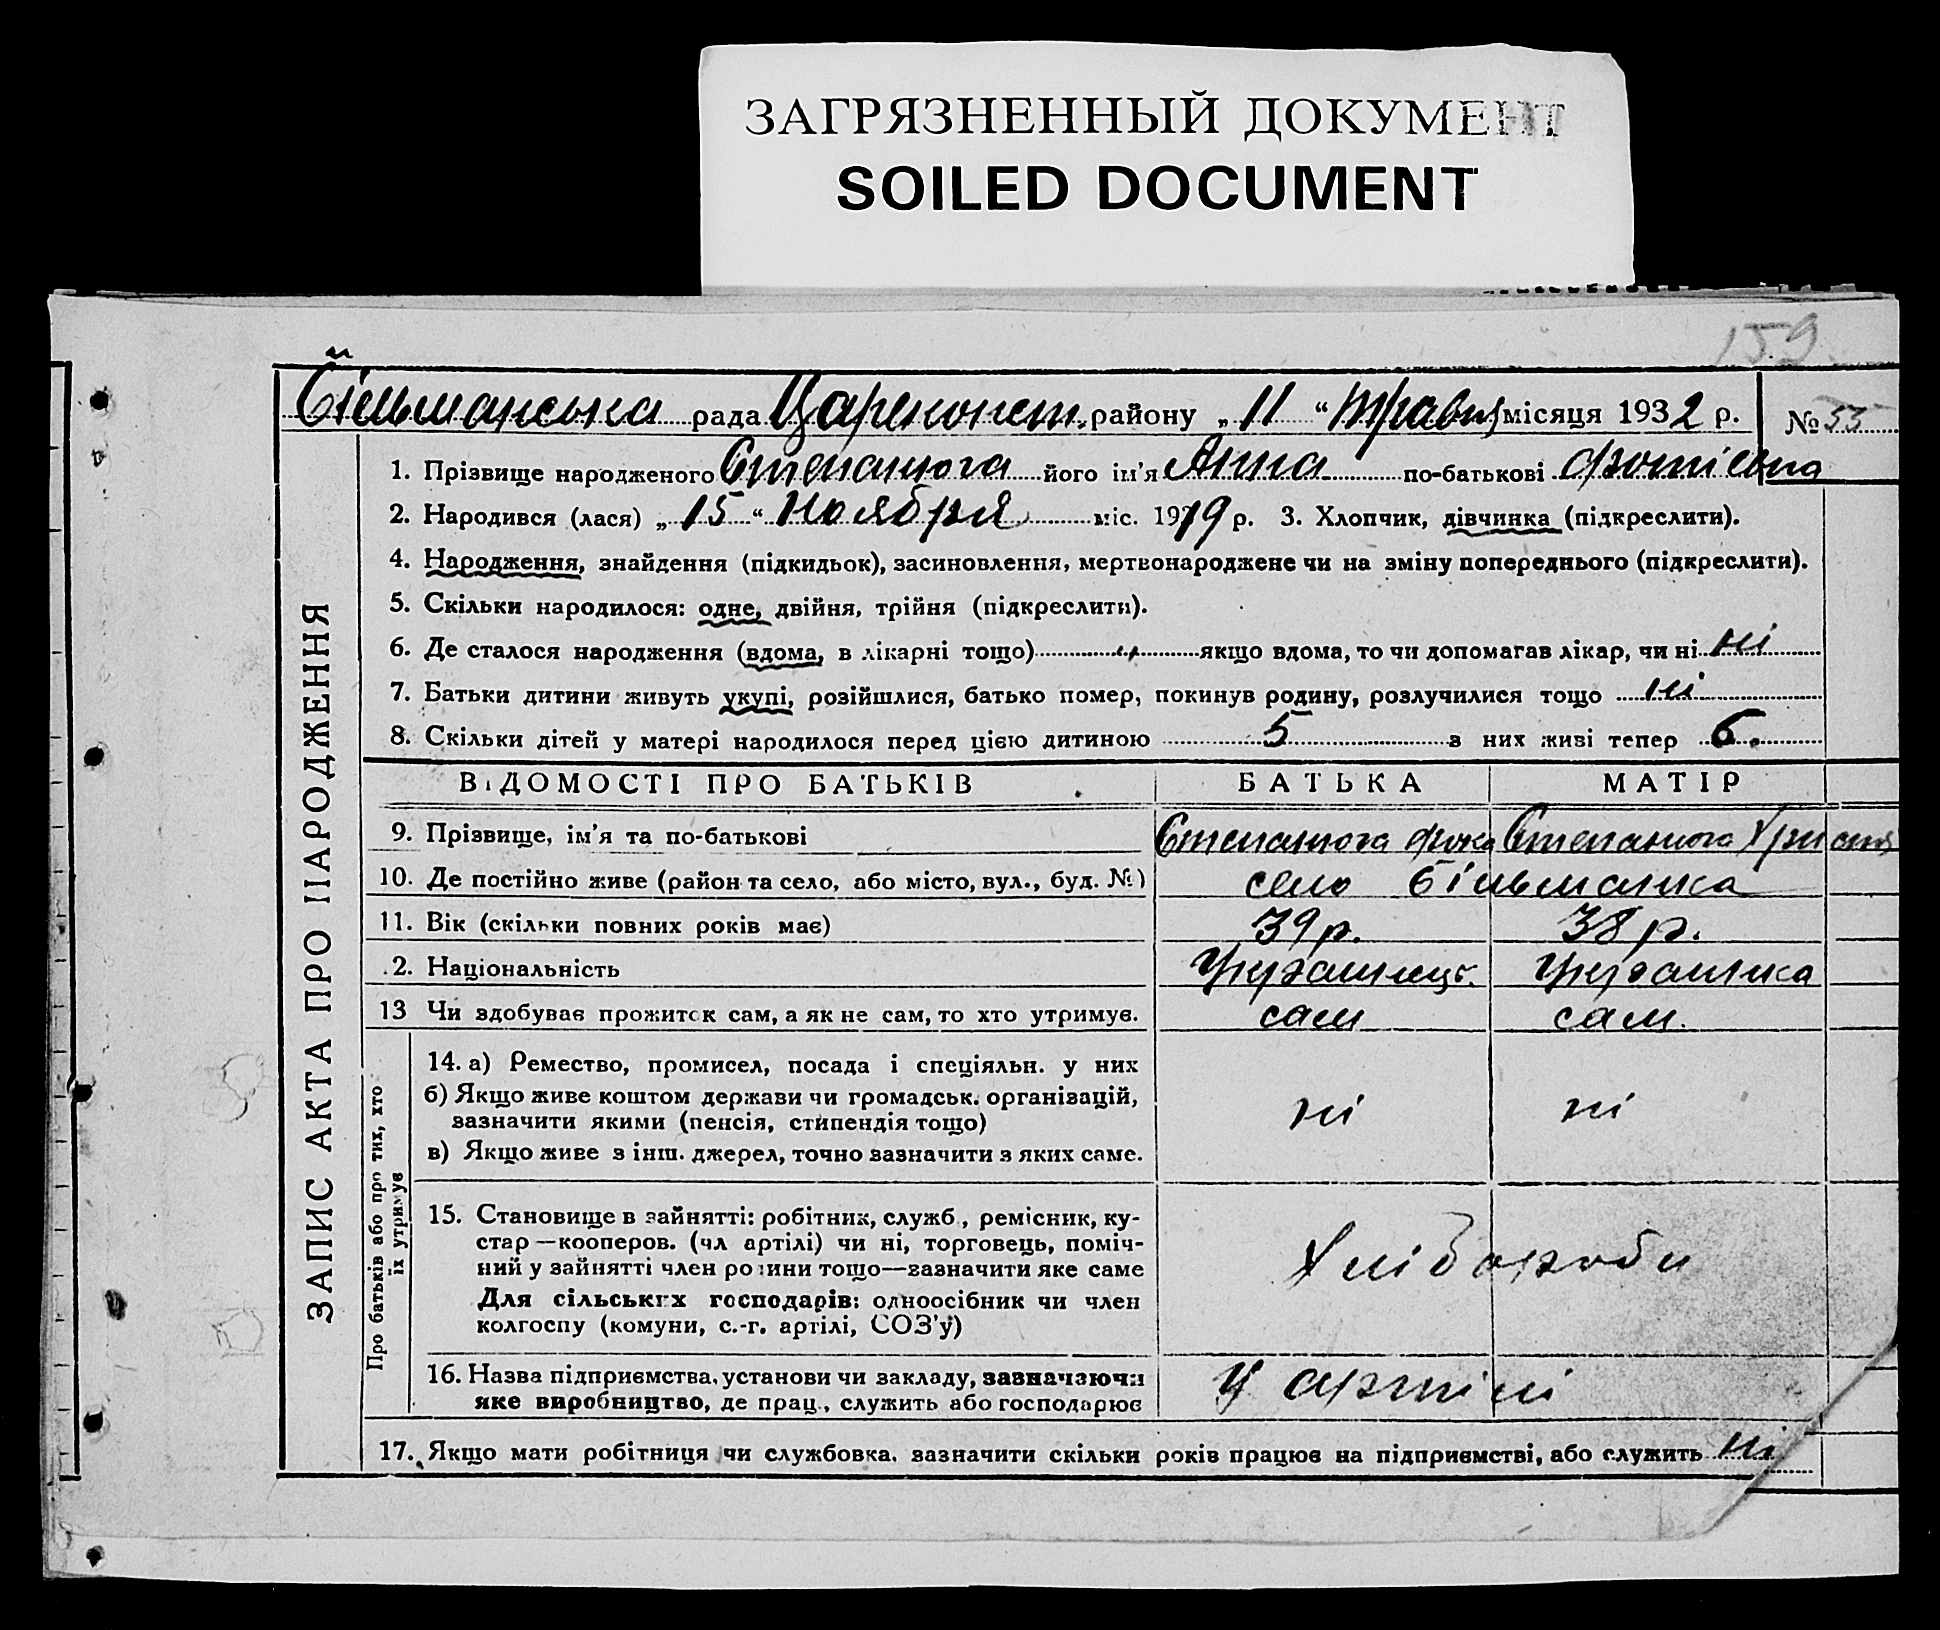 ЗАГРЯЗНЕННЫЙ ДОКУМЕНТ
SOILED DOCUMENT
159
Більманська рада Цареконст. району „ 11 “ травня місяця 1932 р. № 53
ЗАПИС АКТА ПРО НАРОДЖЕННЯ
1. Прізвище народженого Степанюга його ім'я Анна по-батькові Фотіевна
2. Народився (лася) „ 15 “ Ноября міс. 1919 р. 3. Хлопчик, дівчинка (підкреслити).
4. Народження, знайдення (підкидьок), засиновлення, мертвонароджене чи на зміну попереднього (підкреслити).
5. Скільки народилося: одне, двійня, трійня (підкреслити).
6. Де сталося народження (вдома, в лікарні тощо) „ якщо вдома, то чи допомагав лікар, чи ні ні
7. Батьки дитини живуть укупі, розійшлися, батько помер, покинув родину, розлучилися тощо ні
8. Скільки дітей у матері народилося перед цією дитиною 5 з них живі тепер 6.
ВІДОМОСТІ ПРО БАТЬКІВ БАТЬКА МАТІР
9. Прізвище, ім'я та по-батькові Степанюга Степанюга
10. Де постійно живе (район та село, або місто, вул., буд. №) село Більманка
11. Вік (скільки повних років має) 39 р. 38 р.
.2. Національність Українець. Українка
13 Чи здобував прожиток сам, а як не сам, то хто утримує. сам сам.
Про батьків або про тих, хто
їх утримує
14. а) Ремество, промисел, посада і спеціяльн. у них
б) Якщо живе коштом держави чи громадськ. організацій,
зазначити якими (пенсія, стипендія тощо) ні ні
в) Якщо живе з інш. джерел, точно зазначити з яких саме.
15. Становище в зайнятті: робітник, служб., ремісник, ку-
стар—кооперов. (чл артілі) чи ні, торговець, поміч-
ний у зайнятті член родини тощо—зазначити яке саме хлібороби
Для сільських господарів: одноосібник чи член
колгоспу (комуни, с.-г. артілі, СОЗ'у)
16. Назва підприємства, установи чи закладу, зазначаючи У артілі
яке виробництво, де прац., служить або господарює
17. Якщо мати робітниця чи службовка, зазначити скільки років працює на підприємстві, або служить ні